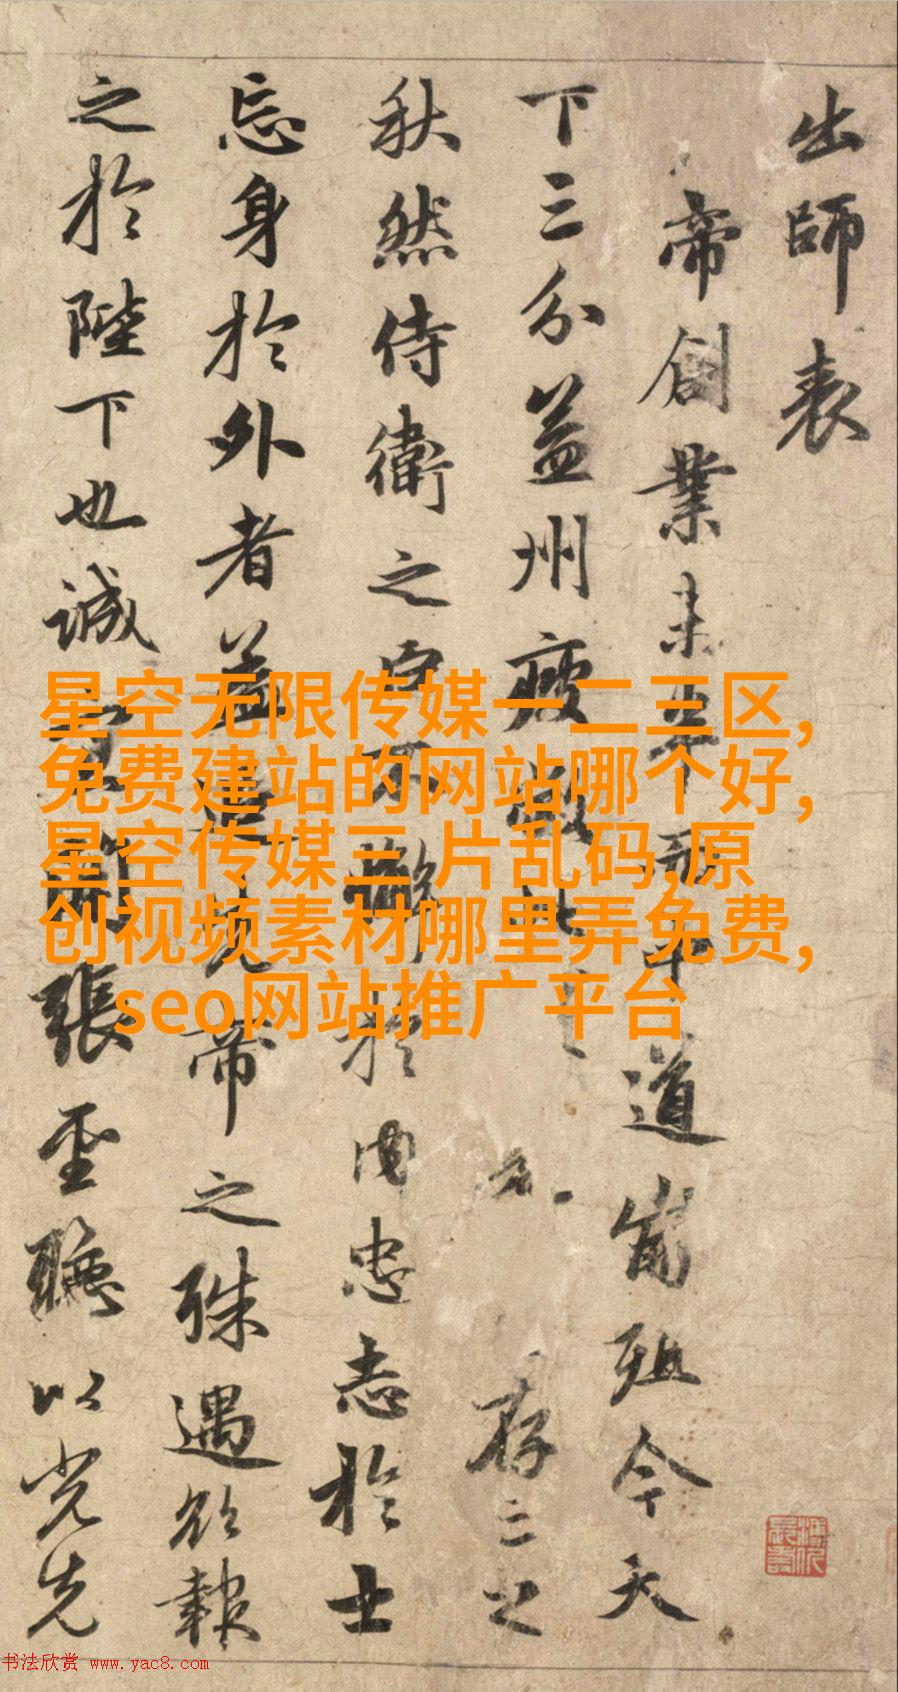 出師表
帝創業未半而中道崩殂今天
下三分益州疲敝此存二之
秋然侍衛之臣不懈於内忠志於士
忘身於外者蓋追先帝之殊遇欲報
之於陛下也誠宜開張聖聽以光先
星空无限传媒一二三区,
免费建站的网站哪个好,
星空传媒三 片乱码,原
创视频素材哪里弄免费,
seo网站推广平台
书法欣赏 www.yac8.com